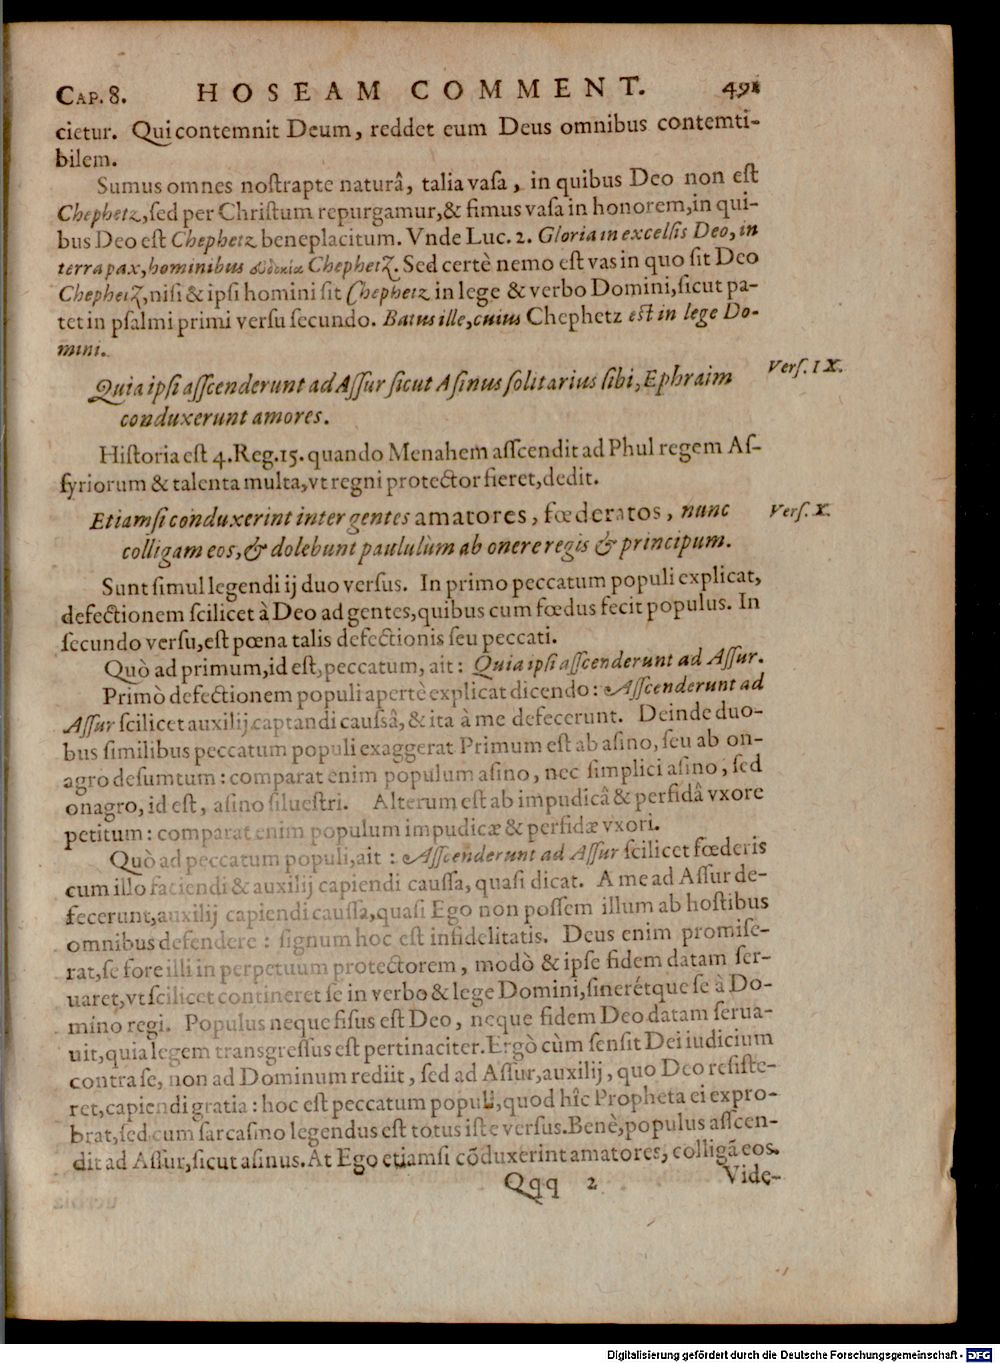 CAP. 8. HOSEAM COMMENT. 491
cietur. Qui contemnit Deum, reddet eum Deus omnibus contemti-
bilem.
Sumus omnes nostrapte naturâ, talia vasa, in quibus Deo non est
Chephetz, sed per Christum repurgamur, & fimus vasa in honorem, in qui-
bus Deo est Chephetz beneplacitum. Vnde Luc. 2. Gloria in excelsis Deo, in
terra pax, hominibus Chephetz. Sed certè nemo est vas in quo sit Deo
Chephetz, nisi & ipsi homini sit Chephetz in lege & verbo Domini, sicut pa-
tet in psalmi primi versu secundo. Batus ille, cuius Chephetz est in lege Do-
mini.
Quia ipsi asscenderunt ad Assur sicut Asinus solitarius sibi, Ephraim
conduxerunt amores.
Vers. IX.
Historia est 4. Reg. 15. quando Menahem asscendit ad Phul regem As-
syriorum & talenta multa, vt regni protector fieret, dedit.
Etiamsi conduxerint inter gentes amatores, fœderatos, nunc
colligam eos, & dolebunt paululùm ab onere regis & principum.
Vers. X.
Sunt simul legendi ij duo versus. In primo peccatum populi explicat,
defectionem scilicet à Deo ad gentes, quibus cum fœdus fecit populus. In
secundo versu, est pœna talis defectionis seu peccati.
Quò ad primum, id est, peccatum, ait: Quia ipsi asscenderunt ad Assur.
Primò defectionem populi apertè explicat dicendo: Asscenderunt ad
Assur scilicet auxilij captandi caussâ, & ita à me defecerunt. Deinde duo-
bus similibus peccatum populi exaggerat Primum est ab asino, seu ab on-
agro desumtum: comparat enim populum asino, nec simplici asino, sed
onagro, id est, asino siluestri. Alterum est ab impudicâ & perfidâ vxore
petitum: comparat enim populum impudicæ & perfidæ vxori.
Quò ad peccatum populi, ait: Asscenderunt ad Assur scilicet fœderis
cum illo faciendi & auxilij capiendi caussa, quasi dicat. A me ad Assur de-
fecerunt, auxilij capiendi caussa, quasi Ego non possem illum ab hostibus
omnibus defendere: signum hoc est infidelitatis. Deus enim promise-
rat, se fore illi in perpetuum protectorem, modò & ipse fidem datam ser-
uaret, vt scilicet contineret se in verbo & lege Domini, sinerétque se à Do-
mino regi. Populus neque fisus est Deo, neque fidem Deo datam serua-
uit, quia legem transgressus est pertinaciter. Ergò cùm sensit Dei iudicium
contra se, non ad Dominum rediit, sed ad Assur, auxilij, quo Deo resiste-
ret, capiendi gratia: hoc est peccatum populi, quod hîc Propheta ei expro-
brat, sed cum sarcasmo legendus est totus iste versus. Benè, populus asscen-
dit ad Assur, sicut asinus. At Ego etiamsi cōduxerint amatores, colligā eos.
Qqq 2 Vide-
Digitalisierung gefördert durch die Deutsche Forschungsgemeinschaft - DFG